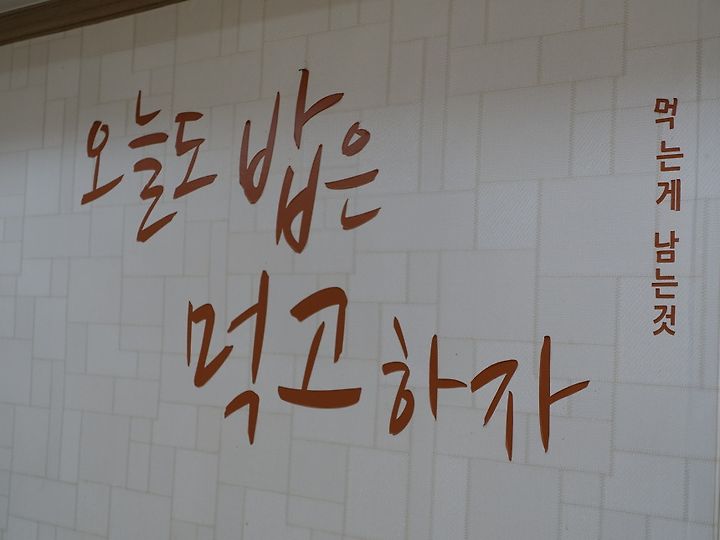 오늘도 밥은
먹고 하자
먹는게 남는것